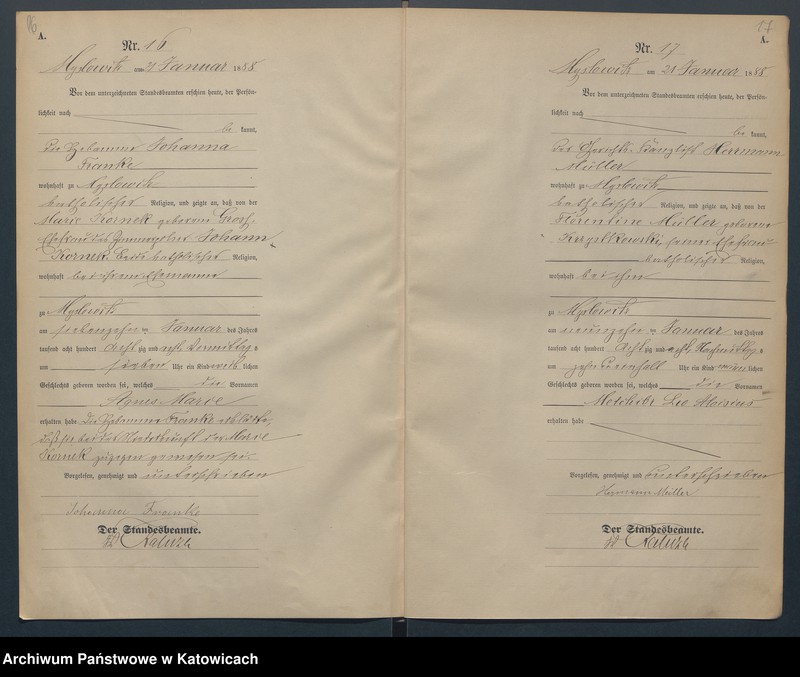 16
A.
Nr. 16
Myslowitz am 21 Januar 1888
Vor dem unterzeichneten Standesbeamten erschien heute, der Persön-
lichkeit nach
be kannt,
die Hebamme Johanna
Franke
wohnhaft zu Myslowitz
katholischer Religion, und zeigte an, daß von der
Marie Kornek geborene
Ehefrau des Johann
Kornek, beide katholischer Religion,
wohnhaft bei ihrem Ehemanne
zu Myslowitz
am siebenzehn ten Januar des Jahres
tausend acht hundert acht zig und acht Vormittags
um sieben Uhr ein Kind weib lichen
Geschlechts geboren worden sei, welches die Vornamen
Agnes Marie
erhalten habe. Die Hebamme Franke erklärte,
daß sie bei der Niederkunft der Marie
Kornek zugegen gewesen sei.
Vorgelesen, genehmigt und unterschrieben
Johanna Franke
Der Standesbeamte.
17
A.
Nr. 17
Myslowitz am 21 Januar 1888
Vor dem unterzeichneten Standesbeamten erschien heute, der Persön-
lichkeit nach
be kannt,
der Gerichts-Kanzlist Herrmann
Müller
wohnhaft zu Myslowitz
katholischer Religion, und zeigte an, daß von der
Florentine Müller geborene
seiner Ehefrau
katholischer Religion,
wohnhaft bei ihm
zu Myslowitz
am neunzehn ten Januar des Jahres
tausend acht hundert acht zig und acht Nachmittags
um zehn einhalb Uhr ein Kind männ lichen
Geschlechts geboren worden sei, welches die Vornamen
Melchior Leo Aloisius
erhalten habe
Vorgelesen, genehmigt und unterschrieben
Hermann Müller
Der Standesbeamte.
Archiwum Państwowe w Katowicach